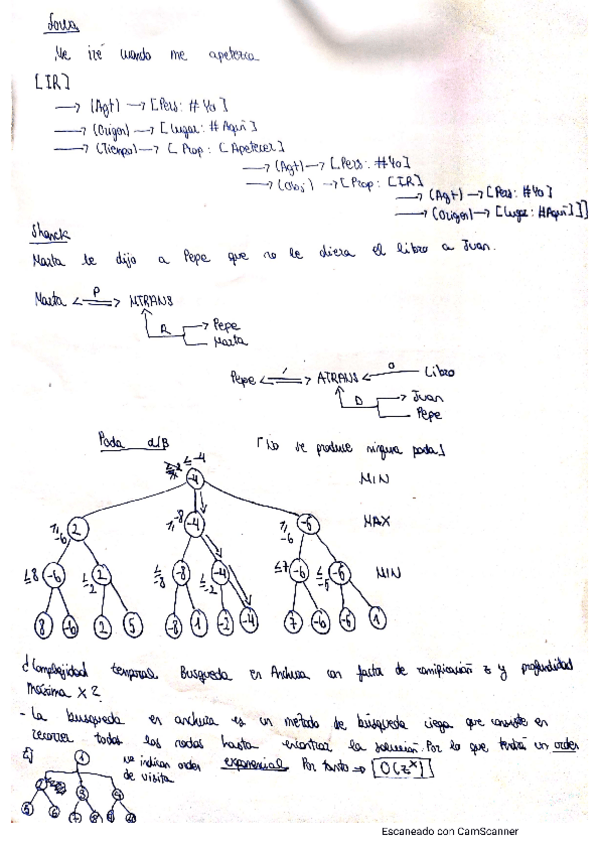 Sowa
Me iré cuando me apetezca
[IR]
→ (Agt) → [Pers: #Yo]
→ (Origen) → [Lugar: #Aquí]
→ (Tiempo) → [Prop: [Apetecer]
→ (Agt) → [Pers: #Yo]
→ (Obj) → [Prop: [IR]
→ (Agt) → [Pers: #Yo]
→ (Origen) → [Lugar: #Aquí]]]
Shanck
Marta le dijo a Pepe que no le diera el libro a Juan.
Marta <=P=> MTRANS
R → Pepe
Marta
Pepe <=/=> ATRANS ← O Libro
D → Juan
Pepe
Poda α/β "No se produce ninguna poda"
≤ -4
-4 MIN
≥ -6 2 ≥ -8 -4 ≥ -6 -6 MAX
≤8 -6 ≤ 2 2 ≤ -8 -8 ≤ -2 -4 ≤7 -6 -6 MIN
8 -6 2 5 -8 1 -2 -4 7 -6 -6 1
¿Complejidad temporal Busqueda en Anchura con factor de ramificación z y profundidad
máxima x?
- La busqueda en anchura es un método de búsqueda ciega que consiste en
recorrer todos los nodos hasta encontrar la solución. Por lo que tendrá un orden
exponencial Por tanto ⇒ [O(z^x)]
1 nº indican orden
de visita
2 3 4
5 6 7 8 9 10
Escaneado con CamScanner